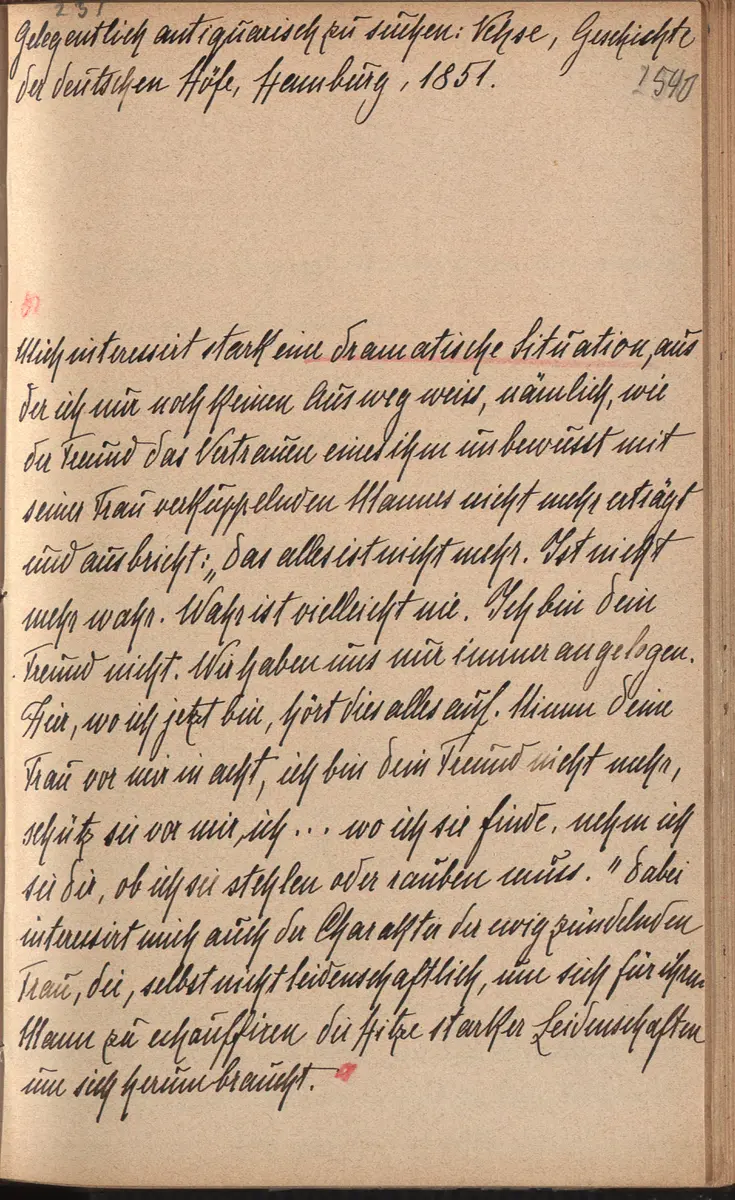 231
Gelegentlich antiquarisch zu suchen: Vehse, Geschichte
der deutschen Höfe, Hamburg, 1851.
2540
Mich interessirt stark eine dramatische Situation, aus
der ich nur noch keinen Ausweg weiss, nämlich, wie
der Freund das Vertrauen eines ihm unbewusst mit
seiner Frau verkuppelnden Mannes nicht mehr erträgt
und ausbricht: „Das alles ist nicht mehr. Ist nicht
mehr wahr. Wahr ist vielleicht nie. Ich bin dein
Freund nicht. Wir haben uns nur immer angelogen.
Hier, wo ich jetzt bin, hört dies alles auf. Nimm deine
Frau vor mir in acht, ich bin dein Freund nicht mehr,
schütz sie vor mir, ich ... wo ich sie finde, nehm ich
sie dir, ob ich sie stehlen oder rauben muss." Dabei
interessirt mich auch der Charakter der ewig zündelnden
Frau, die, selbst nicht leidenschaftlich, um sich für ihren
Mann zu echauffiren die Hitze starker Leidenschaften
um sich herum braucht.